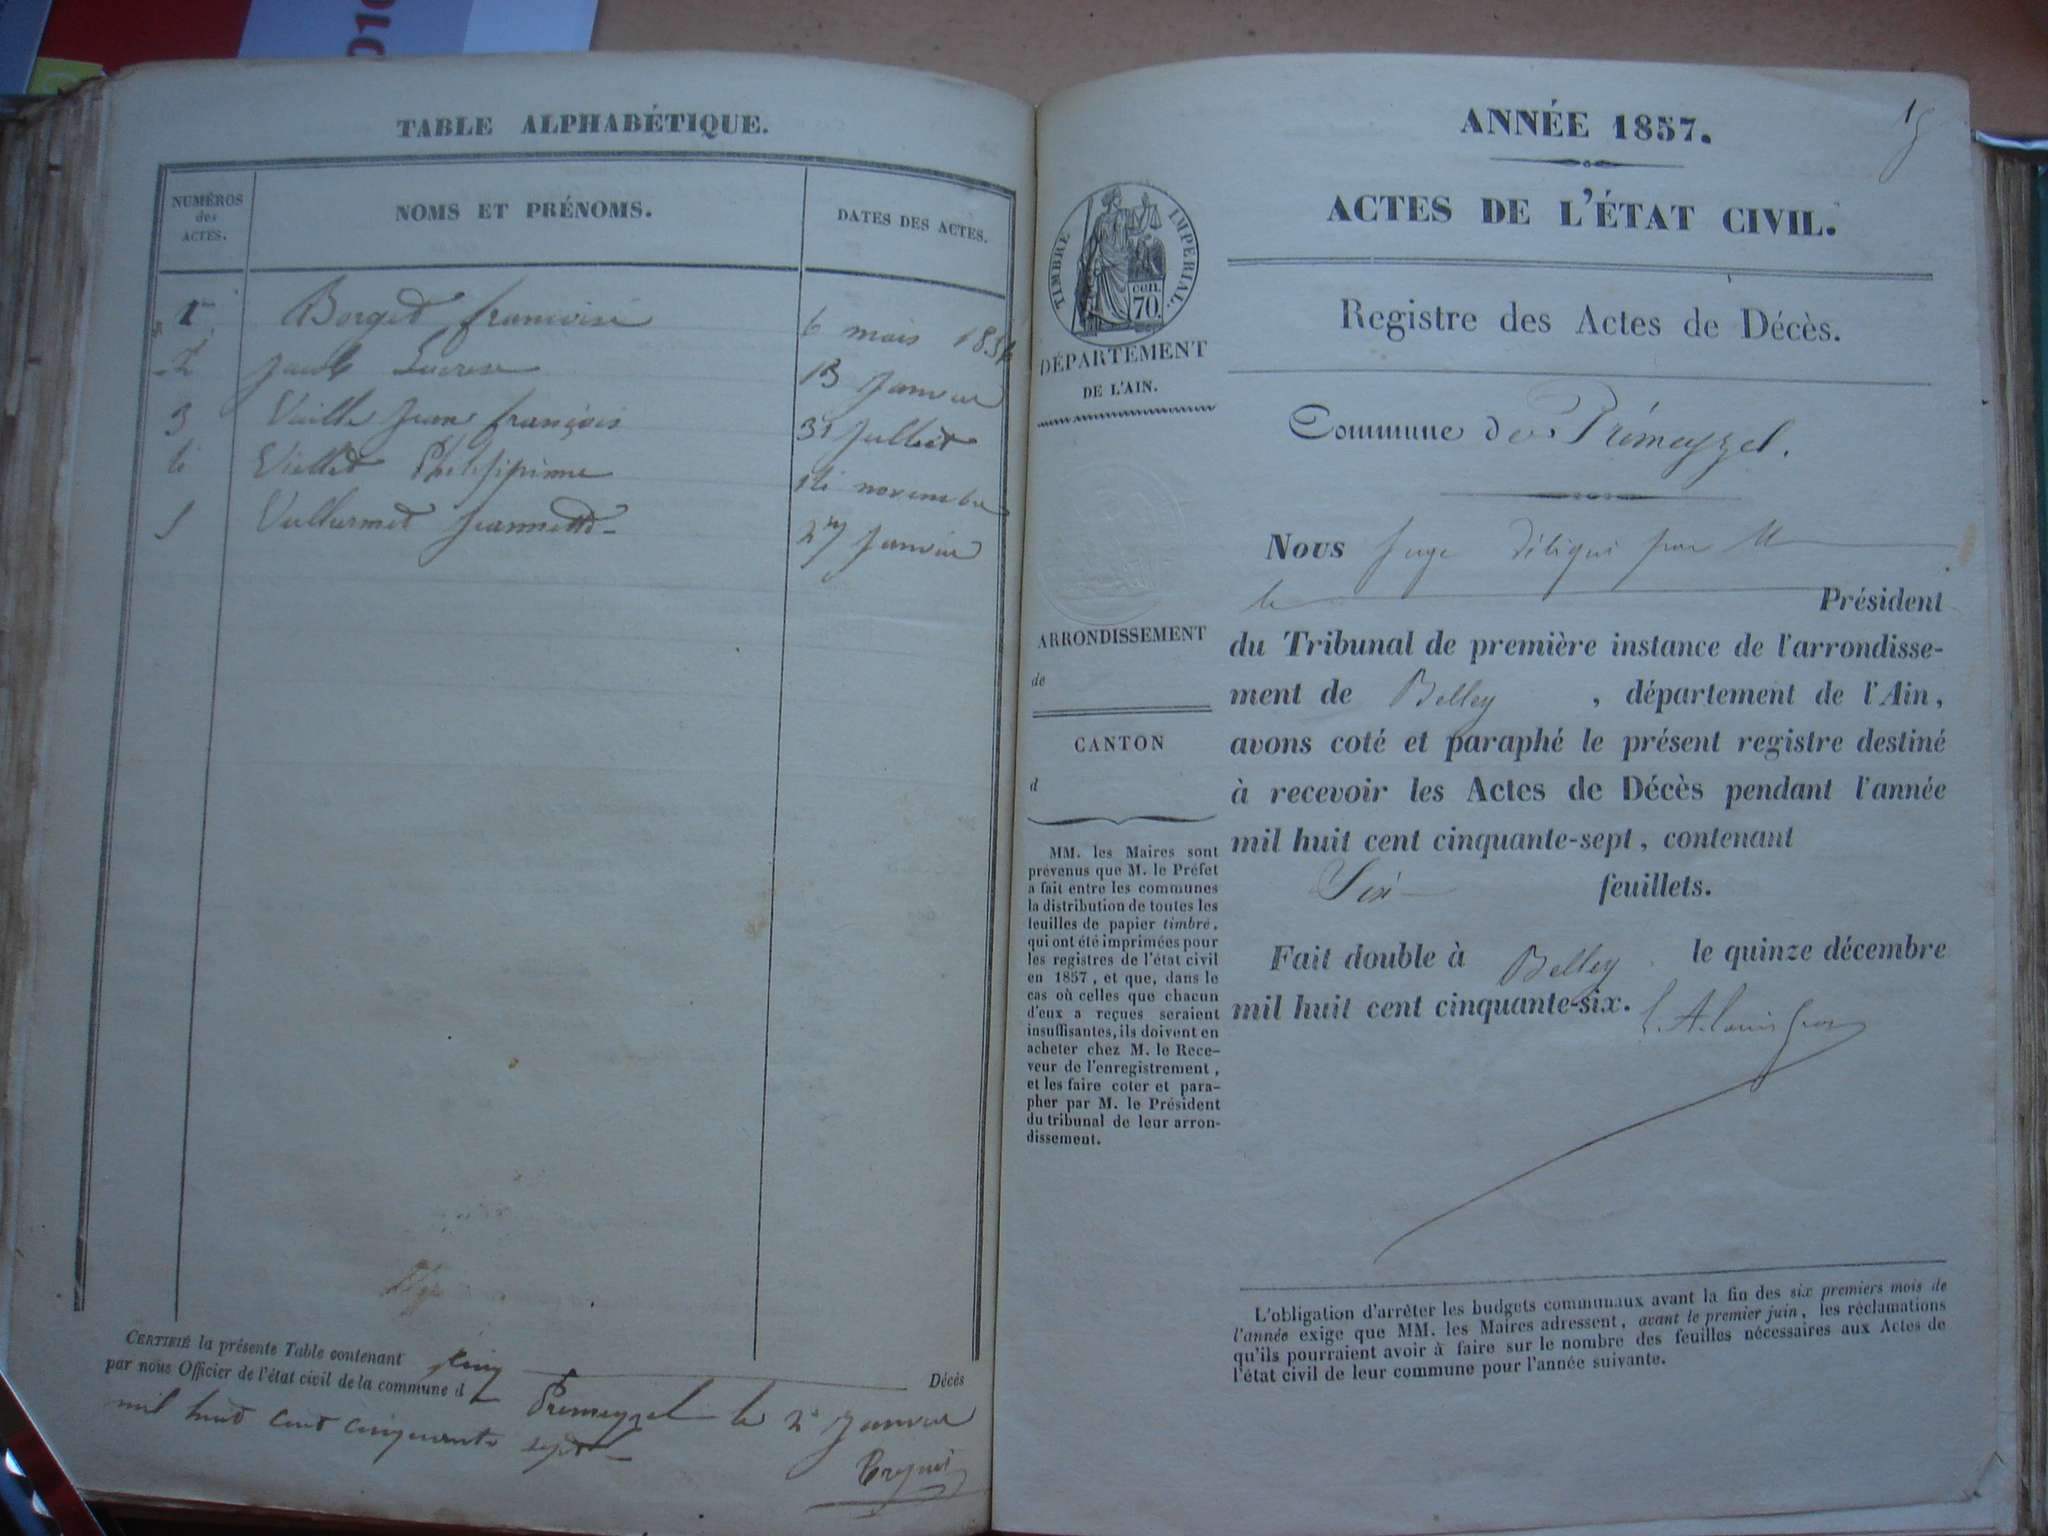 010
TABLE ALPHABÉTIQUE.
NUMÉROS
des
ACTES.
NOMS ET PRÉNOMS.
DATES DES ACTES.
1er Borget françoise 6 mars 1856
2 Jacob 13 Janvier
3 Jean françois 31 Juillet
4 Viollet Philippinne 14 novembre
5 Vullermet Jeannette 27 Janvier
CERTIFIÉ la présente Table contenant cinq Décès
par nous Officier de l'état civil de la commune d Prémeyzel le 2 Janvier
mil huit cent cinquante sept
ANNÉE 1857.
ACTES DE L'ÉTAT CIVIL.
TIMBRE IMPÉRIAL.
CEN.
70.
DÉPARTEMENT
DE L'AIN.
ARRONDISSEMENT
de
CANTON
d
MM. les Maires sont
prévenus que M. le Préfet
a fait entre les communes
la distribution de toutes les
feuilles de papier timbré,
qui ont été imprimées pour
les registres de l'état civil
en 1857, et que, dans le
cas où celles que chacun
d'eux a reçues seraient
insuffisantes, ils doivent en
acheter chez M. le Rece-
veur de l'enregistrement,
et les faire coter et para-
pher par M. le Président
du tribunal de leur arron-
dissement.
Registre des Actes de Décès.
Commune de Prémeyzel.
Nous Juge délégué par M
le Président
du Tribunal de première instance de l'arrondisse-
ment de Belley, département de l'Ain,
avons coté et paraphé le présent registre destiné
à recevoir les Actes de Décès pendant l'année
mil huit cent cinquante-sept, contenant
Six feuillets.
Fait double à Belley le quinze décembre
mil huit cent cinquante-six.
L'obligation d'arrêter les budgets communaux avant la fin des six premiers mois de
l'année exige que MM. les Maires adressent, avant le premier juin, les réclamations
qu'ils pourraient avoir à faire sur le nombre des feuilles nécessaires aux Actes de
l'état civil de leur commune pour l'année suivante.